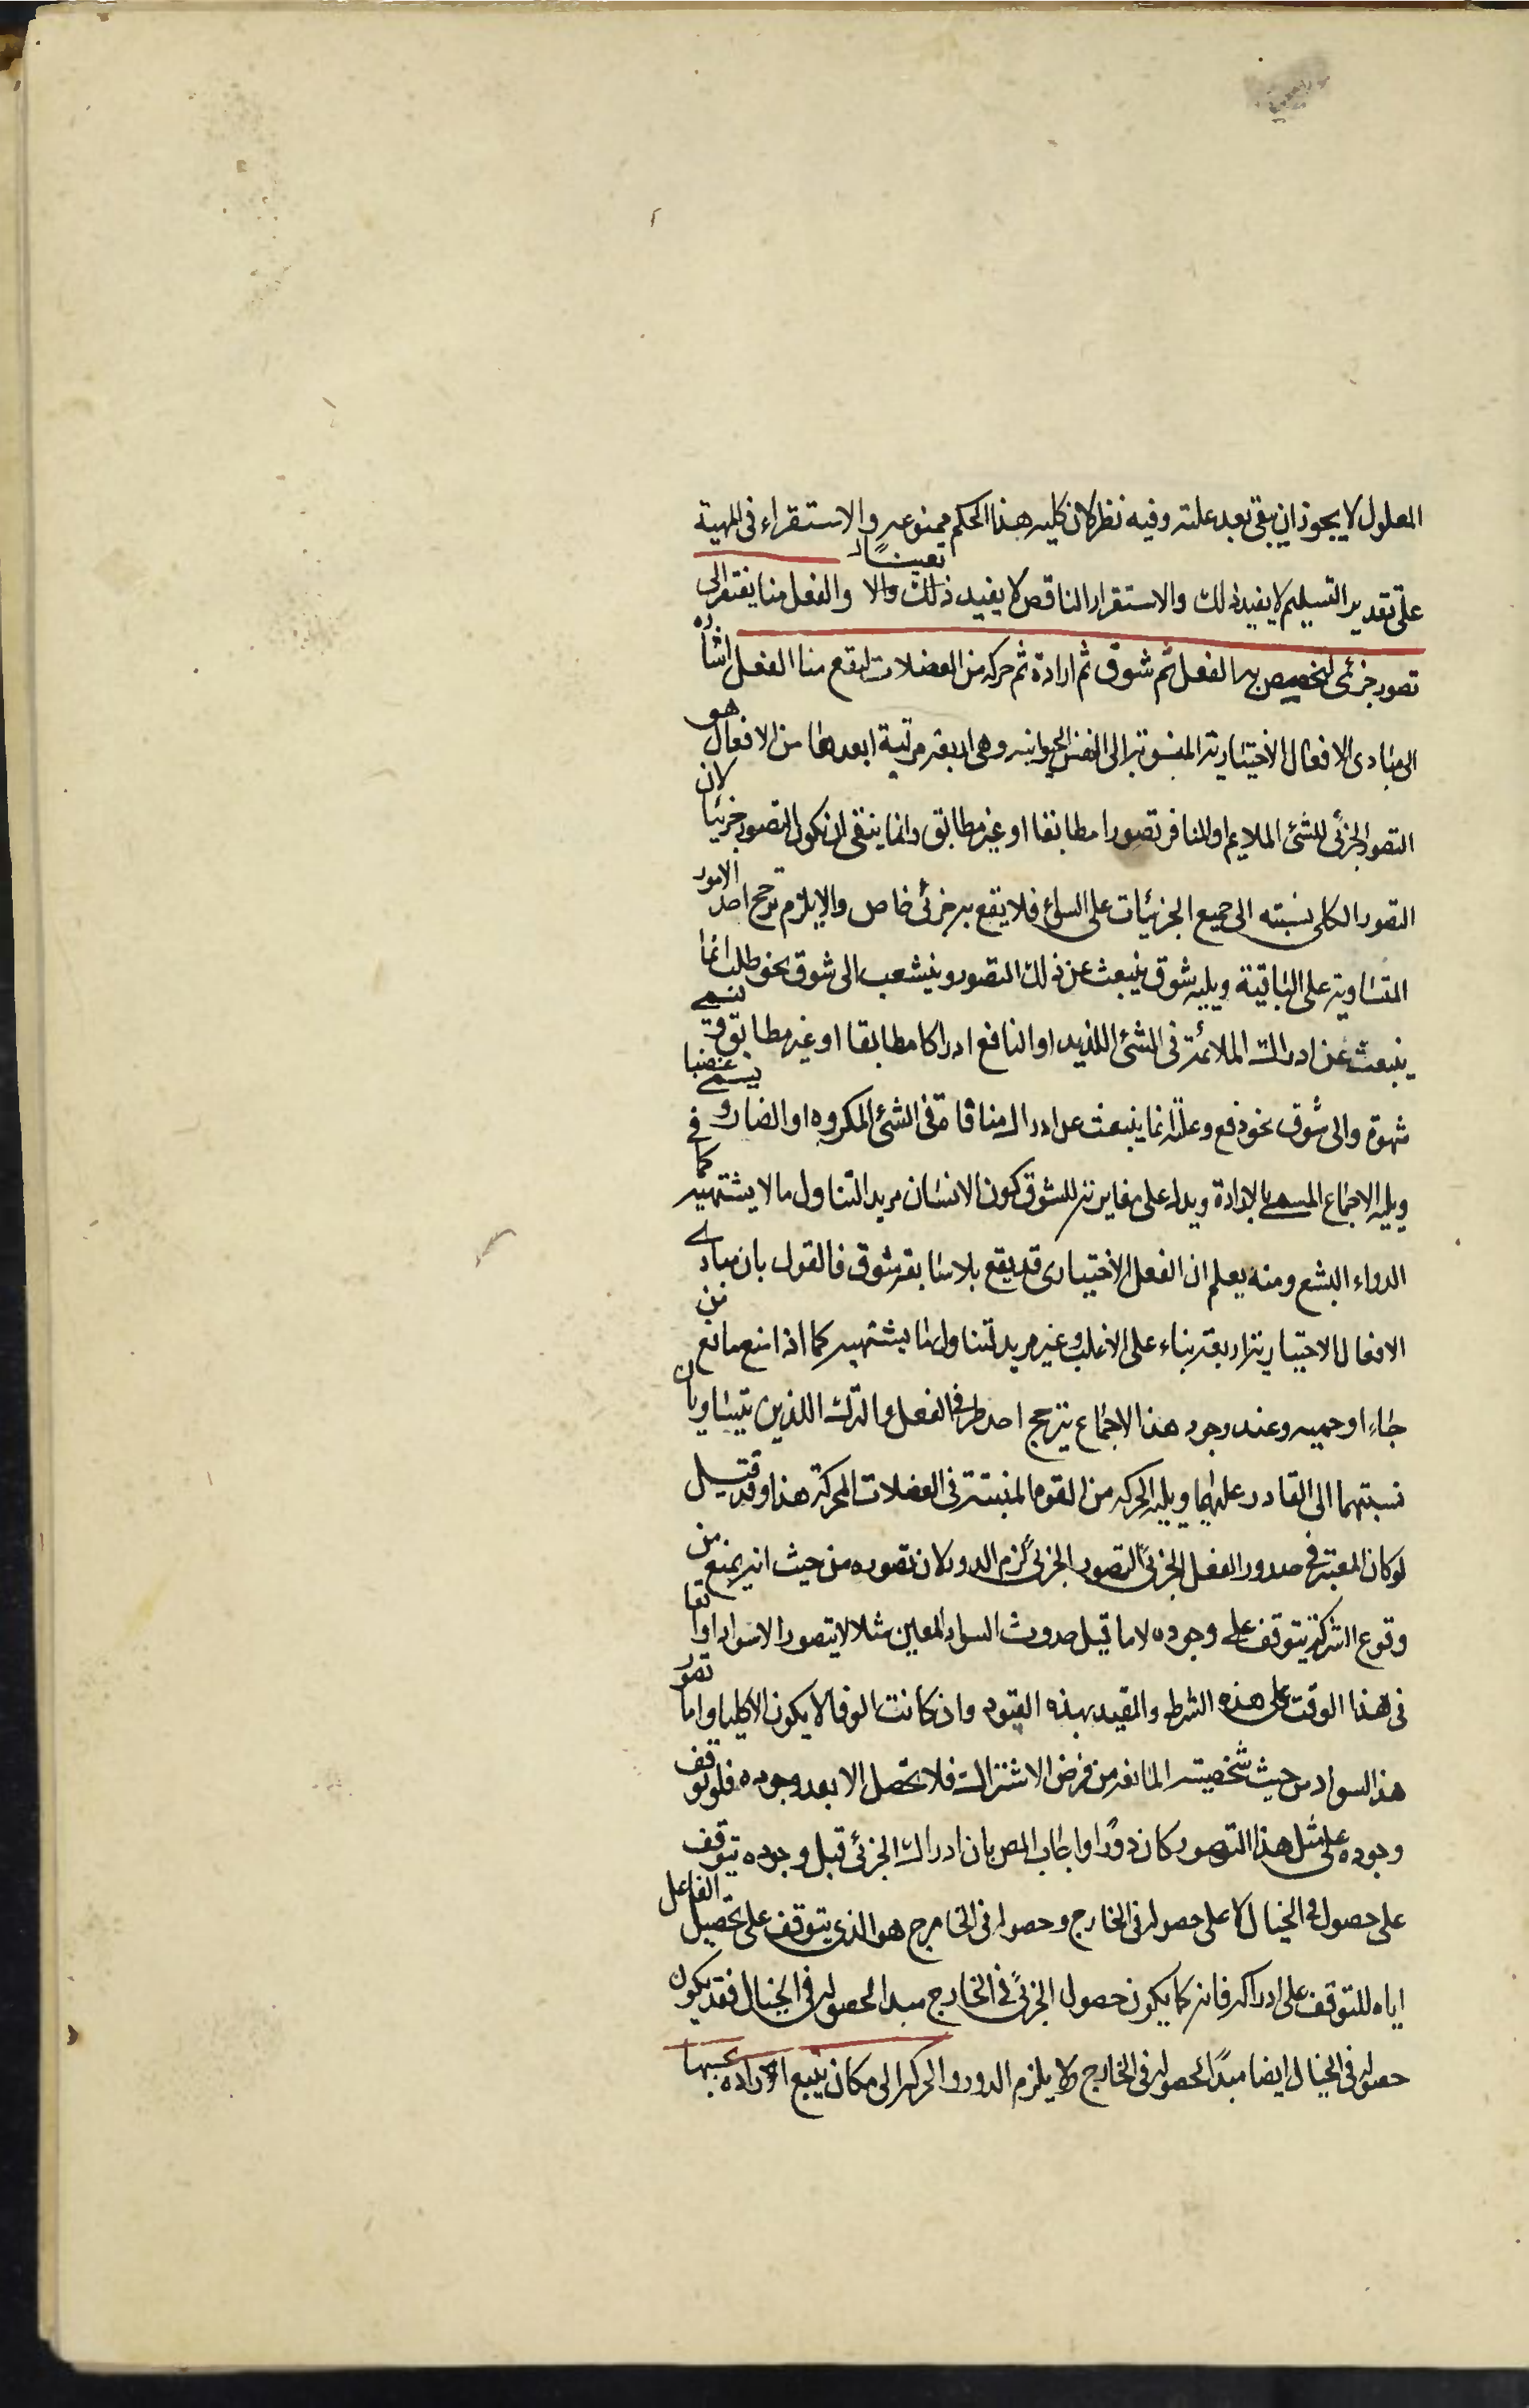 المعلول لا يجوز ان يبقى بعد علته وفيه نظر لان كليه هذا الحكم ممنوعه والاستقراء فى المهية
على تقدير التسليم لا يفيد ذلك والاستقرار الناقص لا يفيد ذلك والا والفعل منا يفتقر الى
تصور جزئى ليخصص به الفعل ثم شوق ثم ارادة ثم حركة من العضلات ليقع منا الفعل اشارة
الى مبادى الافعال الاختيارية المنسوبة الى النفس الحيوانيه وهى اربعة مرتبة ابعدها من الافعال هو
التصور الجزئى للشئ الملايم او المنافر تصورا مطابقا او غير مطابق وانما ينبغى ان يكون التصور جزئيا لان
التصور الكلى نسبته الى جميع الجزئيات على السواء فلا يقع به جزئى خاص والا يلزم ترجح احد الامور
المتساوية على الباقية ويليه شوق ينبعث عن ذلك التصور وينشعب الى شوق نحو طلب انما
ينبعث عن ادراك الملائمة فى الشئ اللذيد او النافع ادراكا مطابقا او غير مطابق وتسمى
شهوة والى شوق نحو دفع وغلبة انما ينبعث عن ادراك منافاة فى الشئ المكروه او الضار ويسمى غضبا
ويليه الاجماع المسمى بالارادة ويدل على مغايرته للشوق كون الانسان مريدا لتناول ما لا يشتهيه كما فى
الدواء البشع ومنه يعلم ان الفعل الاختيارى قد يقع بلا سابقة شوق فالقول بان مبادى
الافعال الاختيارية اربعة بناء على الاغلب وغير مريد لتناول ما يشتهيه كما اذا منع مانع من
حياء او حميه وعند وجود هذا الاجماع يترجح احد طرفى الفعل والترك اللذين يتساويان
نسبتهما الى القادر عليهما ويليه الحركه من القوه المنبثة فى العضلات المحركة هذا وقد قيل
لو كان المعتبر فى صدور الفعل الجزئى التصور الجزئى لزم الدور لان تصوره من حيث انه يمنع من
وقوع الشركة يتوقف على وجوده لاما قيل حدوث السواد المعين مثلا لا يتصور الا سوادا واقعا
فى هذا الوقت على هذه الشرط والمقيد بهذه القيود وان كانت الوفا لا يكون الا كليا واما تصور
هذا السواد من حيث شخصيته المانعة من فرض الاشتراك فلا تحصل الا بعد وجوده فلو توقف
وجوده على مثل هذا التصور كان دورا واجاب المص بان ادراك الجزئى قبل وجوده يتوقف
على حصوله فى الخيال لا على حصوله فى الخارج وحصوله فى الخارج هو الذى يتوقف على تحصيل الفاعل
اياه للتوقف على ادراكه فانه كما يكون حصول الجزئى فى الخارج مبدا لحصوله فى الخيال فقد يكون
حصوله فى الخيال ايضا مبدا لحصوله فى الخارج ولا يلزم الدور والحركة الى مكان يتبع الارادة بحسبها